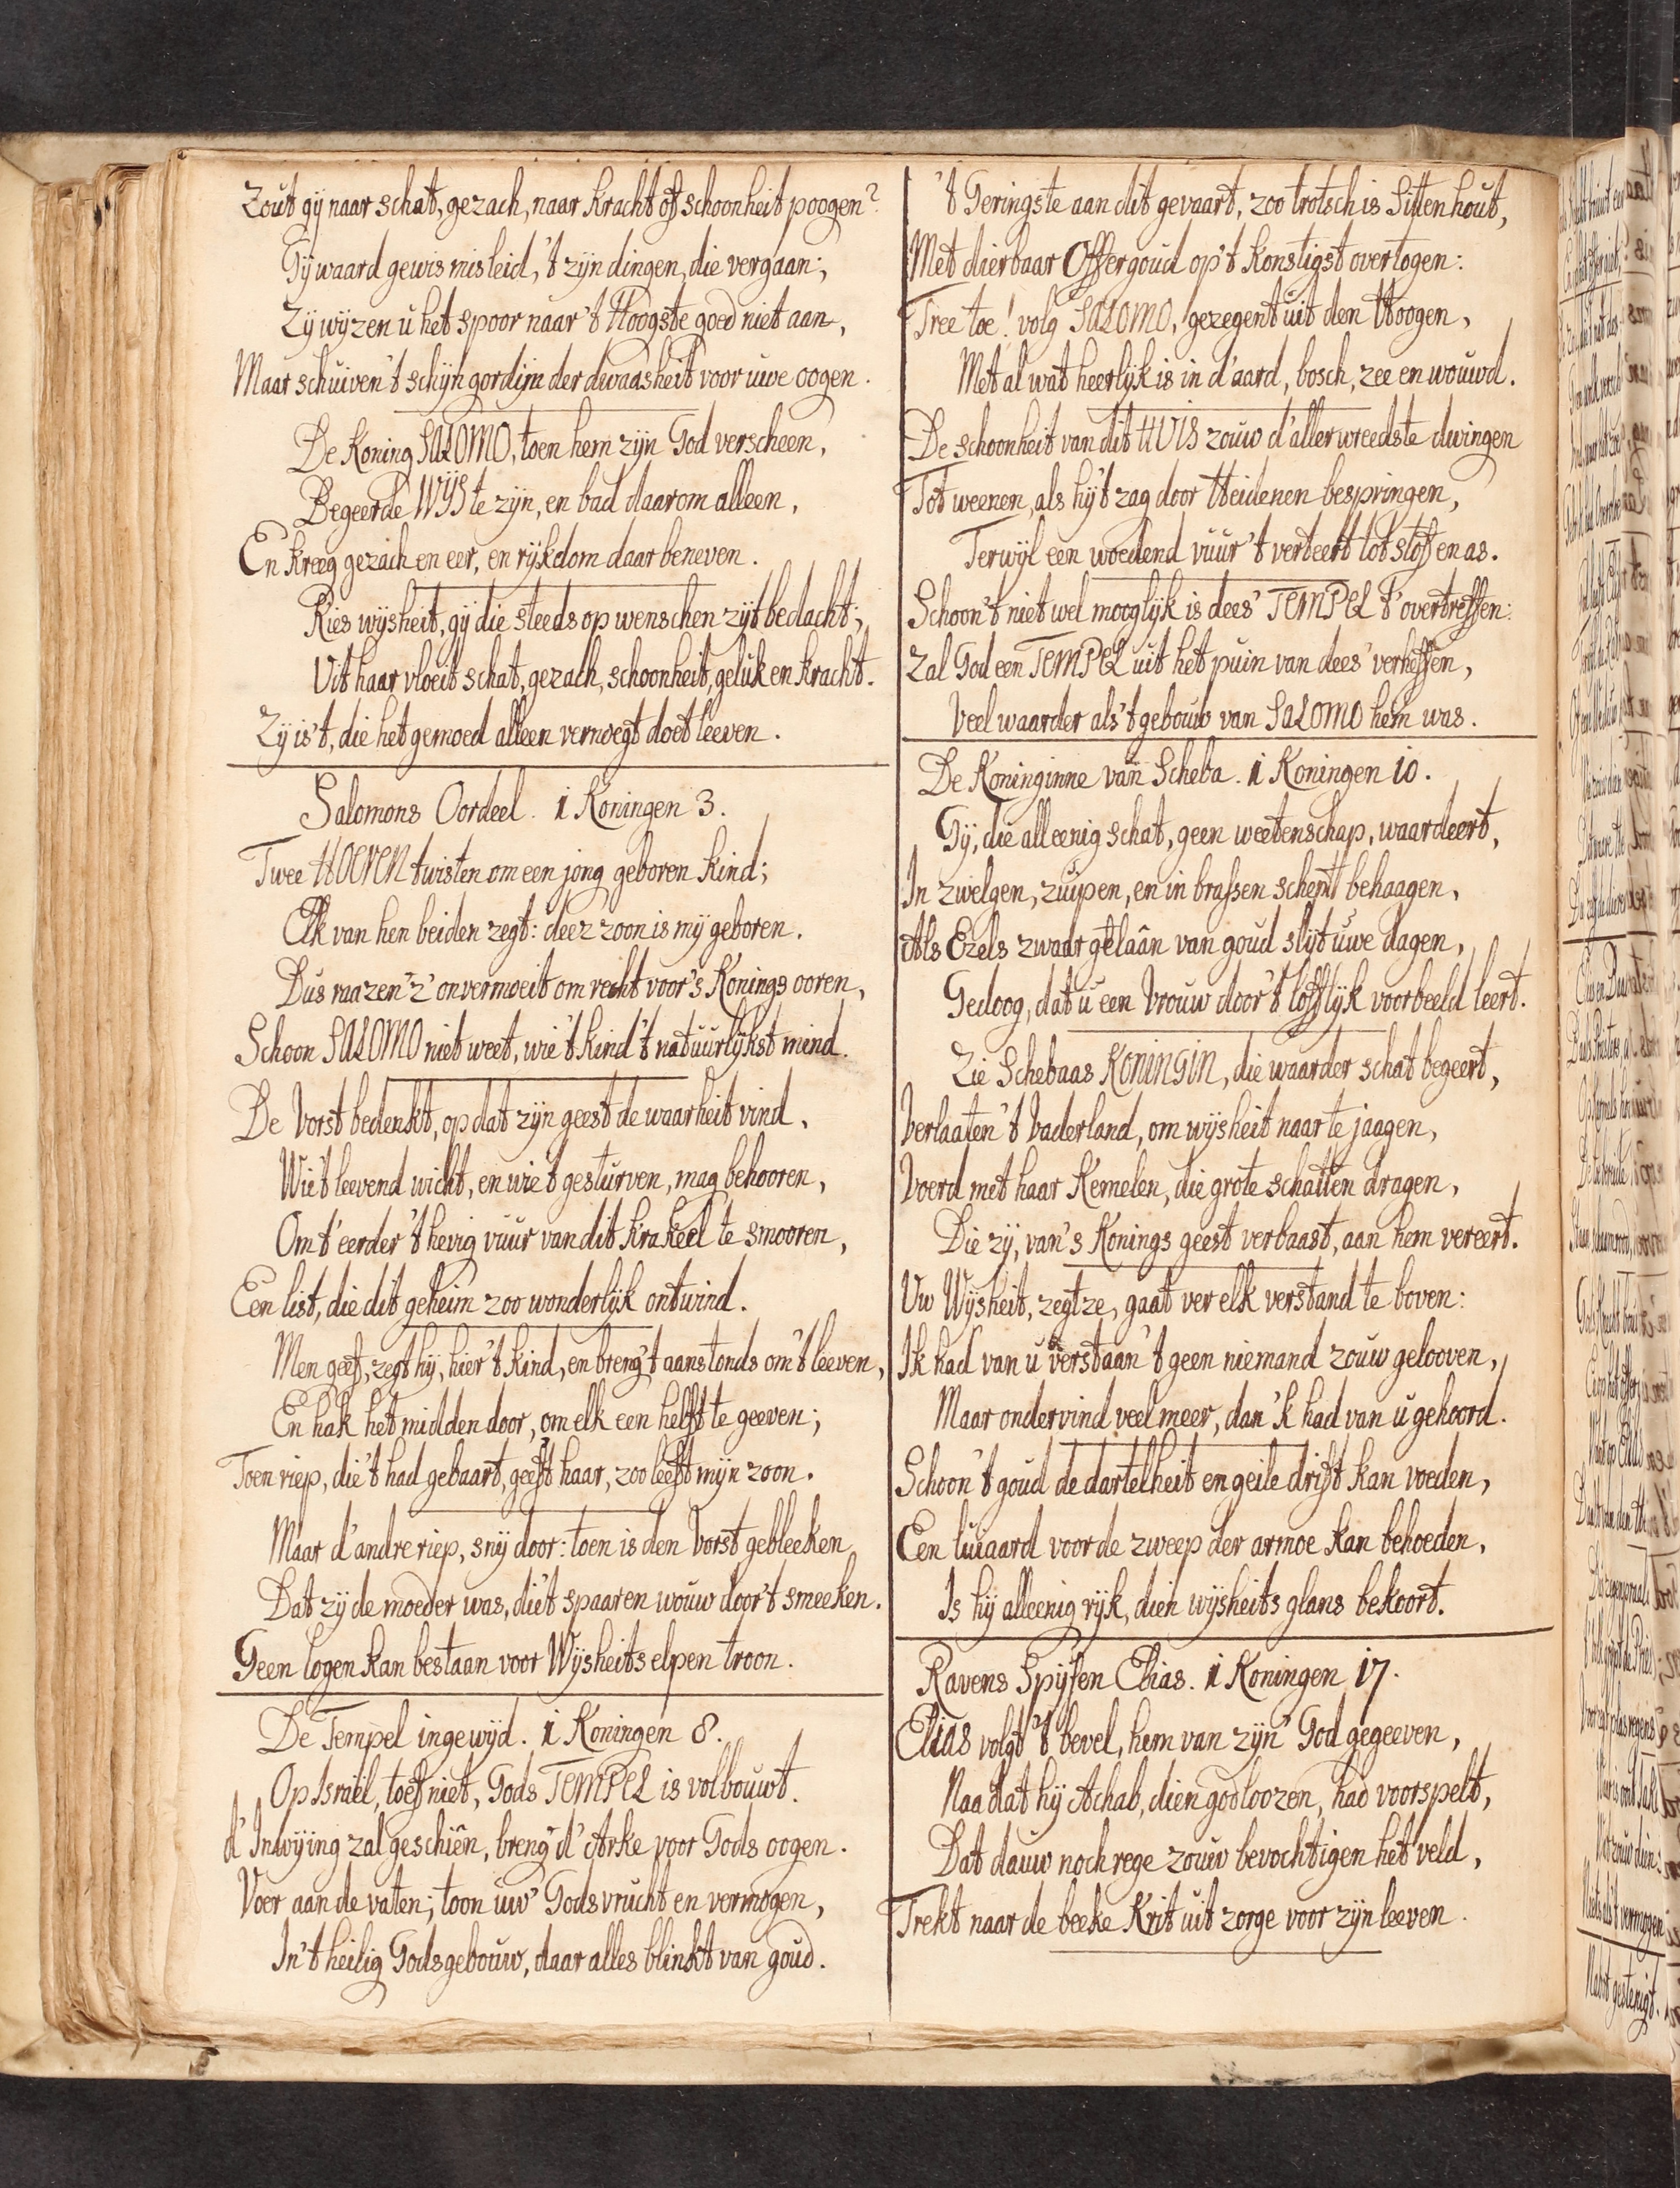 Zout gy naar schat, gezach, naar kracht of schoonheit poogen?
Gy waard gewis misleid, 't zyn dingen, die vergaan;
Zy wyzen u het spoor naar 't Hoogste goed niet aan,
Maar schuiven 't schyn gordijn der dwaasheit voor uwe oogen.
De Koning SALOMO, toen hem zyn God verscheen,
Begeerde WYS te zyn, en bad daarom alleen,
En kreeg gezach en eer, en rykdom daar beneven.
Kies wysheit, gy die steeds op wenschen zyt bedacht;
Uit haar vloeit schat, gezach, schoonheit, geluk en kracht.
Zy is 't, die het gemoed alleen vernoegt doet leeven.
Salomons Oordeel. 1 Koningen 3.
Twee HOEREN twisten om een jong geboren kind;
Elk van hen beiden zegt: deez zoon is my geboren.
Dus raazen z' onvermoeit om recht voor 's Konings ooren,
Schoon SALOMO niet weet, wie 't kind 't natuurlykst mind.
De Vorst bedenkt, op dat zyn geest de waarheit vind,
Wie 't leevend wicht, en wie 't gesturven, mag behooren,
Om t' eerder 't hevig vuur van dit krakeel te smooren,
Een list, die dit geheim zoo wonderlyk ontwind.
Men geef, zegt hy, hier 't kind, en breng 't aanstonds om 't leeven,
En hak het midden door, om elk een helft te geeven;
Toen riep, die 't had gebaart, geeft haar, zoo leeft myn zoon.
Maar d' andre riep, sny door: toen is den Vorst gebleeken
Dat zy de moeder was, die 't spaaren wouw door 't smeeken.
Geen logen kan bestaan voor Wysheits elpen troon.
De Tempel ingewyd. 1 Koningen 8.
Op Israël, toef niet, Gods TEMPEL is volbouwt.
d' Inwying zal geschiên, breng d' Arke voor Gods oogen.
Voer aan de vaten; toon uw' Godsvrucht en vermogen,
In 't heilig Godsgebouw, daar alles blinkt van goud.
't Geringste aan dit gevaart, zoo trotsch is Sitten hout,
Met dierbaar Offergoud op 't konstigst overtogen:
Tree toe! volg SALOMO, gezegent uit den Hoogen,
Met al wat heerlyk is in d' aard, bosch, zee en wouwd.
De schoonheit van dit HUIS zouw d' allerwreedste dwingen
Tot weenen, als hy 't zag door Heidenen bespringen,
Terwyl een woedend vuur 't verteert tot stof en as.
Schoon 't niet wel mooglyk is dees' TEMPEL t' overtreffen:
Zal God een TEMPEL uit het puin van dees' verheffen,
Veel waarder als 't gebouw van SALOMO hem was.
De Koninginne van Scheba. 1 Koningen 10.
Gy, die alleenig schat, geen weetenschap, waardeert,
In zwelgen, zuipen, en in brassen schept behaagen,
Als Ezels zwaar gelaân van goud slyt uwe dagen,
Gedoog, dat u een Vrouw door 't lofflyk voorbeeld leert.
Zie Schebaas KONINGIN, die waarder schat begeert,
Verlaaten 't Vaderland, om wysheit naar te jaagen,
Voerd met haar Kemelen, die grote schatten dragen,
Die zy, van 's Konings geest verbaast, aan hem vereert.
Uw Wysheit, zegt ze, gaat ver elk verstand te boven:
Ik had van u verstaan 't geen niemand zouw gelooven,
Maar ondervind veel meer, dan 'k had van u gehoord.
Schoon 't goud de dartelheit en geile drift kan voeden,
Een luiaard voor de zweep der armoe kan behoeden,
Is hy alleenig ryk, dien wysheits glans bekoort.
Ravens Spysen Elias. 1 Koningen 17.
Elias volgt 't bevel, hem van zyn' God gegeeven,
Naa dat hy Achab, dien godloozen, had voorspelt,
Dat dauw noch rege zouw bevochtigen het veld,
Trekt naar de beeke Krit uit zorge voor zyn leeven.